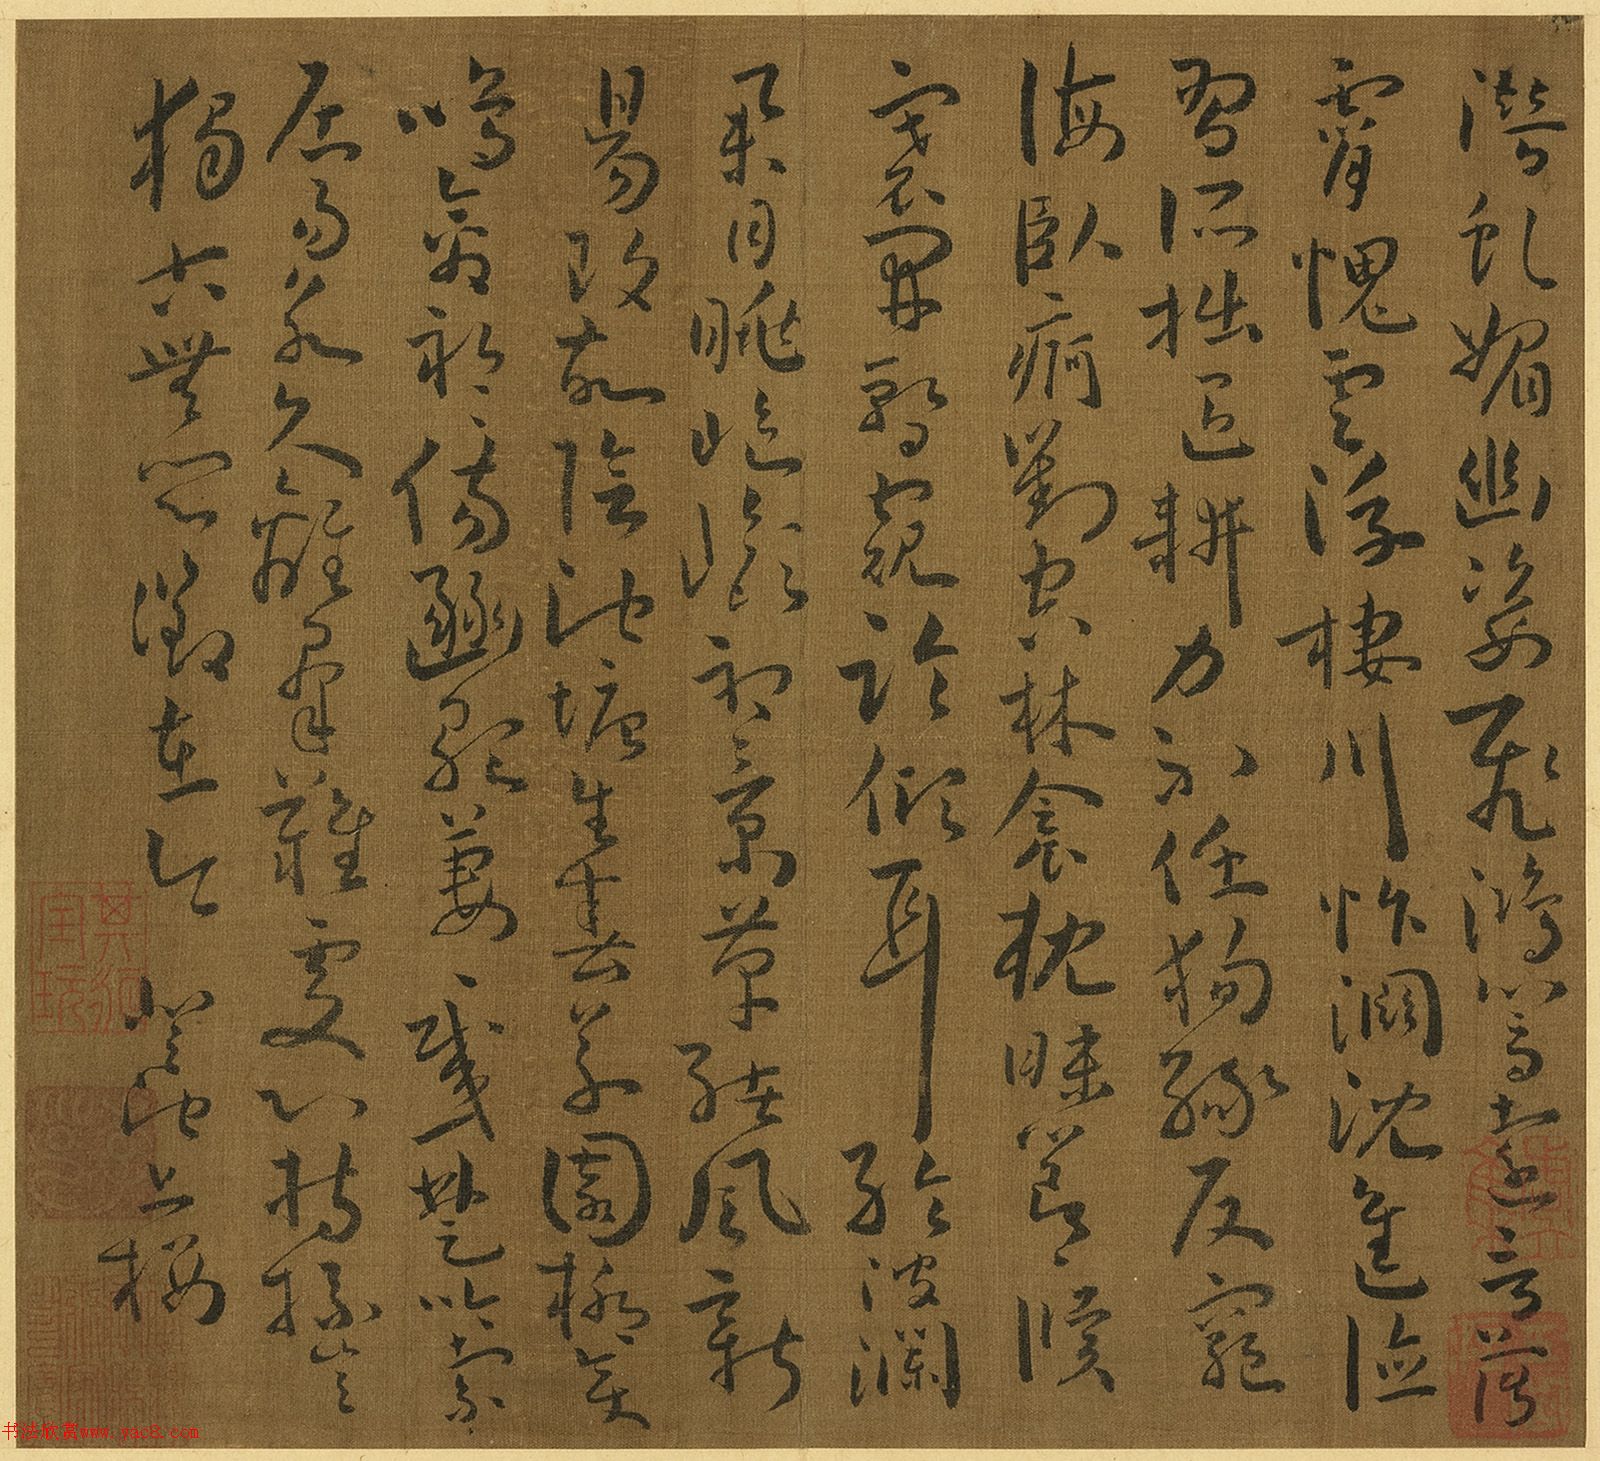 潛虬媚幽姿飛鴻響遠音薄
霄愧雲浮棲川怍淵沈進德
智所拙退耕力不任徇祿反窮
海臥痾對空林衾枕昧節候
褰開暫窺臨傾耳聆波瀾
舉目眺嶇嶔初景革緒風新
陽改故陰池塘生春草園柳變
鳴禽祁祁傷豳歌萋萋感楚吟索
居易永久離群難處心持操豈
獨古無悶徵在今 登池上樓
书法欣赏www.yac8.com